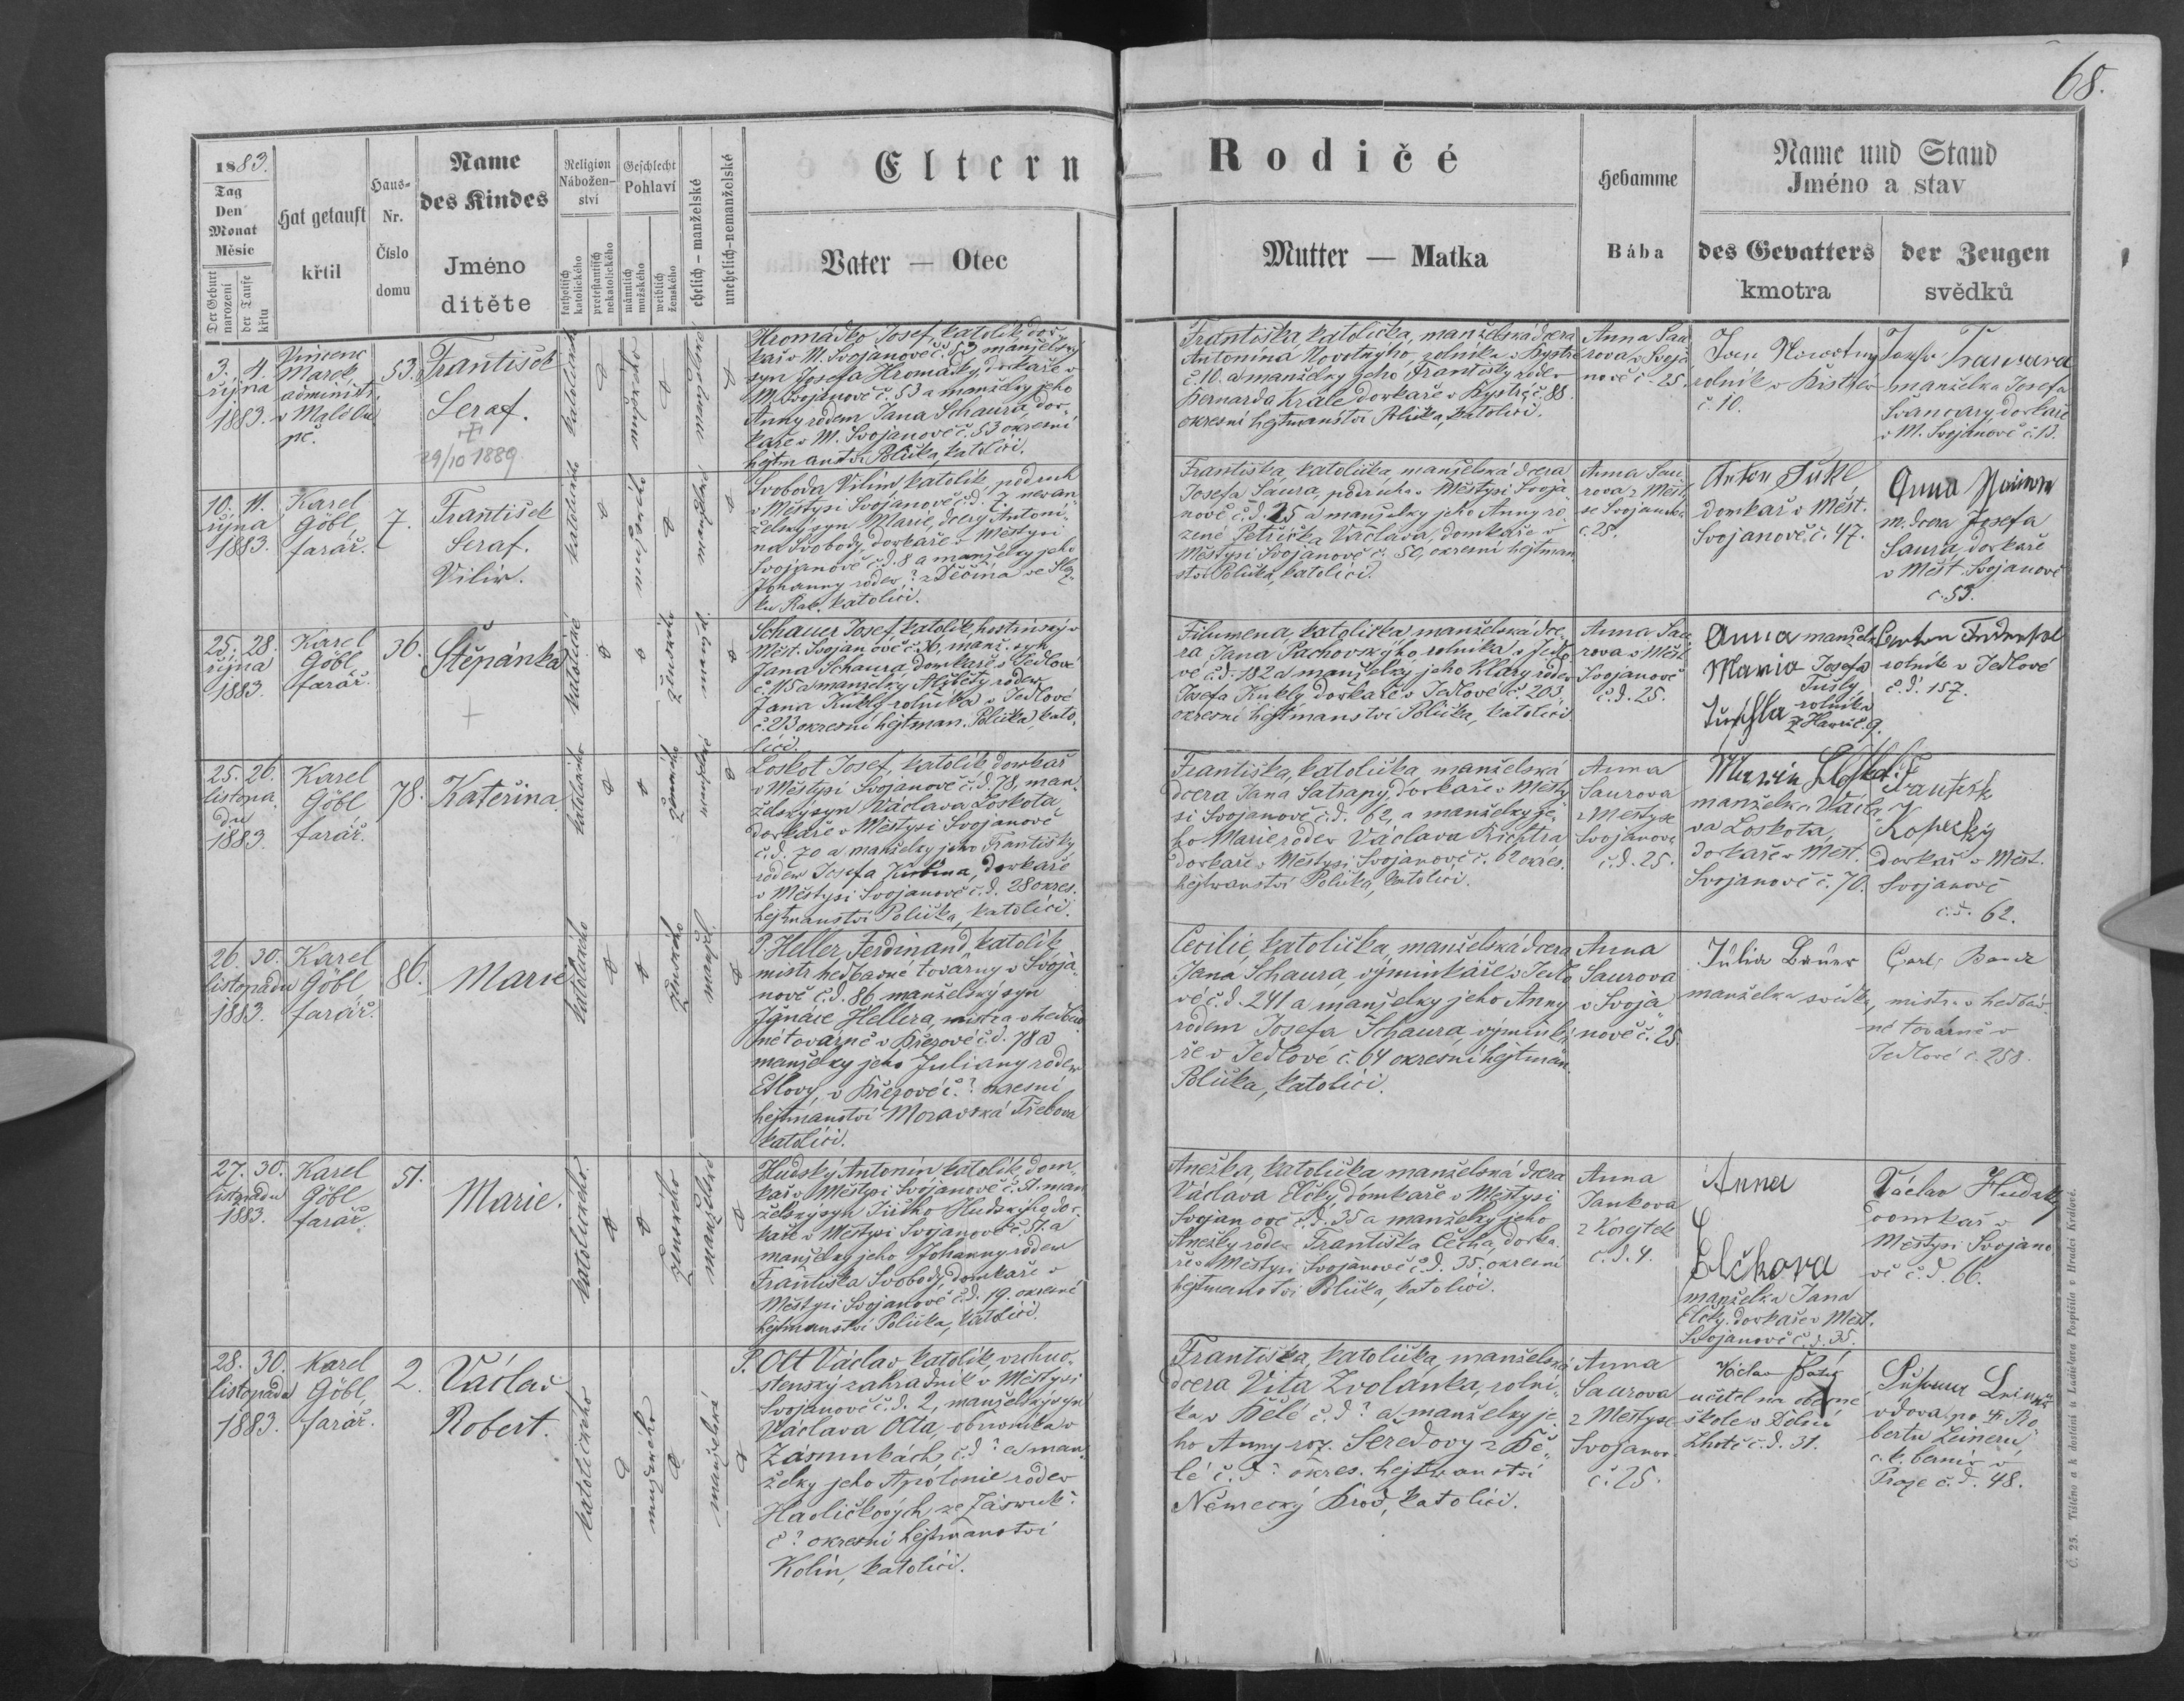 68.
1883.
Tag
Den
Monat
Měsíc
Der Geburt
narození
der Taufe
křtu
Hat getauft
křtil
Haus-
Nr.
Číslo
domu
Name
des Kindes
Jméno
dítěte
Religion
Nábožen-
ství
katholisch
katolického
protestantisch
nekatolického
Geschlecht
Pohlaví
männlich
mužského
weiblich
ženského
ehelich – manželské
unehelich-nemanželské
Eltern — Rodičé
Vater — Otec
Mutter — Matka
Hebamme
Bába
Name und Stand
Jméno a stav
des Gevatters
kmotra
der Zeugen
svědků
3. 4.
října
1883.
Vincenc
Marek
administr.
53.
František
Seraf.
29/10 1889
Hromádko Josef, katolík, dom-
kář v M. Svojanově č. 53 manželský
syn Josefa Hromádky, domkáře v
M. Svojanově č. 53 a manželky jeho
Anny rodem Jana Schaura, dom-
káře v M. Svojanově č. 53 okresní
hejtmanství Polička, katolíci.
Františka, katolička, manželská dcera
Antonína Novotnýho, rolníka v Bystré
č. 10. a manželky jeho Františky rodem
Bernarda Krále domkáře v Bystré č. 88.
okresní hejtmanství Polička, katolíci.
Anna Sau-
rova, v Svoja-
nově č. 25.
Novotny
rolník v
č. 10.
manželka Josefa
Švancary domkáře
v M. Svojanově č. 13.
10. 11.
října
1883.
Karel
Göbl,
farář.
7.
František
Seraf.
Vilím.
Svoboda Vilím katolík, podruh
v Městysi Svojanově č.d. 7 neman-
želský syn Marie, dcery Antoní-
na Svobody, domkáře v Městysi
Svojanově č.d. 8 a manželky jeho
Johanny rodem ? z Děčína ve
katolíci.
Františka, katolička, manželská dcera
Josefa Saura, podruha v Městysi Svoja-
nově č.d. 25 a manželky jeho Anny ro-
zené Petříčka Václava, domkáře v
Městysi Svojanově č. 50, okresní hejtman-
ství Polička, katolíci.
Anna Sau-
rova z Měst.
Svojanova
č. 25.
Anton Sukl,
domkář v Měst.
Svojanově č. 47.
Anna
m. dcera Josefa
Saura, domkáře
v Měst. Svojanově
č. 53.
25. 28.
října
1883.
Karel
Göbl
farář.
36.
Štěpánka
Schauer Josef, katolík, hostinský v
Měst. Svojanově č. 36, manž. syn
Jana Schaura domkáře v Jedlové
č. 115 a manželky Alžběty rodem
Jana Kukly rolníka v Jedlové
č. 213 okresní hejtman. Polička, kato-
líci.
Filumena, katolička manželská dce-
ra Jana Pachovskýho rolníka v Jedlo-
vé č.d. 182 a manželky jeho Kláry rodem
Josefa Kukly domkáře v Jedlové č. 203.
okresní hejtmanství Polička, katolíci
Anna Sau-
rova v Měst.
Svojanově
č.d. 25.
Anna manželka
Maria Josefa
rolníka
rolník v Jedlové
č.d. 157.
25. 26.
listopa-
du
1883.
Karel
Göbl
farář.
78.
Kateřina
Loskot Josef, katolík domkář
v Městysi Svojanově č.d. 78, man-
želský syn Václava Loskota,
domkáře v Městysi Svojanově
č.d. 70 a manželky jeho Františky,
rodem Josefa, domkáře
v Městysi Svojanově č.d. 28 okres.
hejtmanství Polička, katolíci.
Františka, katolička, manželská
dcera Jana Satrapy, domkáře v Městy-
si Svojanově č.d. 62, a manželky je-
ho Marie rodem Václava Richtra,
domkáře v Městysi Svojanově č. 62 okres.
hejtmanství Polička, katolíci.
Anna
Saurova
z Městyse
Svojanova
č.d. 25.
manželka Václa-
va Loskota,
domkáře v Měst.
Svojanově č. 70.
Kopecký
domkář v Měst.
Svojanově
č.d. 62.
26. 30.
listopadu
1883.
Karel
Göbl
farář.
86.
Marie
P. Heller Ferdinand, katolík,
mistr hedbavné továrny v Svoja-
nově č.d. 86 manželský syn
Ignáce Hellera, mistra v hedbav-
né továrně v Březové č.d. 78 a
manželky jeho Juliany rodem
v Březové č.? okresní
hejtmanství Moravská Třebova
katolíci.
Cecilie, katolička, manželská dcera
Jana Schaura, výminkáře v Jedlo-
vé č.d. 241 a manželky jeho Anny
rodem Josefa Schaura, výminká-
ře v Jedlové č. 64 okresní hejtman.
Polička, katolíci.
Anna
Saurova
v Svoja-
nově č. 25.
Júlia Bauer
manželka svědka,
Carl Bauer
mistr v hedbáv-
né továrně v
Jedlové č. 258.
27. 30.
listopadu
1883.
Karel
Göbl
farář.
51.
Marie.
Hudský Antonín katolík, dom-
kář v Městysi Svojanově č. 51. man-
želský syn Jiřího Hudskýho dom-
káře v Městysi Svojanově č. 51. a
manželky jeho Johanny rodem
Františka Svobody, domkáře v
Městysi Svojanově č.d. 19. okresní
hejtmanství Polička, katolíci.
Anežka, katolička manželská dcera
Václava Elčky, domkáře v Městysi
Svojanově č.d. 35 a manželky jeho
Anežky rodem Františka Čecha, domká-
ře v Městysi Svojanově č.d. 35. okresní
hejtmanství Polička, katolíci.
Anna
Jankova
č.d. 4.
Anna
Elčkova
manželka Jana
Elčky, domkáře v Měst.
Svojanově č.d. 35.
Václav Hudsky
domkář v
Městysi Svojano-
vě č.d. 66.
28. 30.
listopadu
1883.
Karel
Göbl,
farář.
2.
Václav
Robert.
P. Olt Václav, katolík, vrchno-
stenský zahradník v Městysi
Svojanově č.d. 2, manželský syn
Václava Olta, obuvníka v
Zásmukách, č.d.? a man-
želky jeho Apolonie rodem
Havlíčkových, ze Zásmuk
č.? okresní hejtmanství
Kolín, katolíci.
Františka, katolička, manželská
dcera Víta Zvolánka, rolní-
ka v Bělé č.d.? a manželky je-
ho Anny roz. Seředovy z Bě-
lé č.d.? okres. hejtmanství
Německý Brod, katolíci.
Anna
Saurova
z Městyse
Svojanov
č. 25.
Václav
učitel na obecné
škole v Dolní
Lhotě č.d. 31.
vdova po
bertu Leineru
Praze č.d. 48.
Č. 25. Tištěno a k dostání u Ladislava Pospíšila v Hradci Králové.